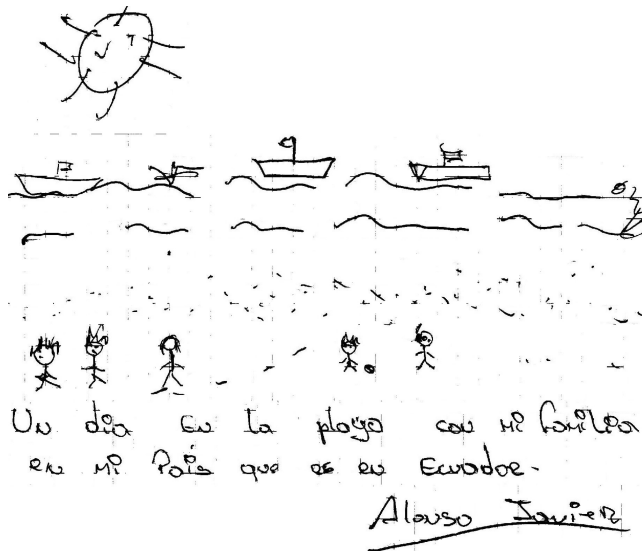 Un dia en la playa con mi familia
en mi País que es en Ecuador.
Alonso Javier